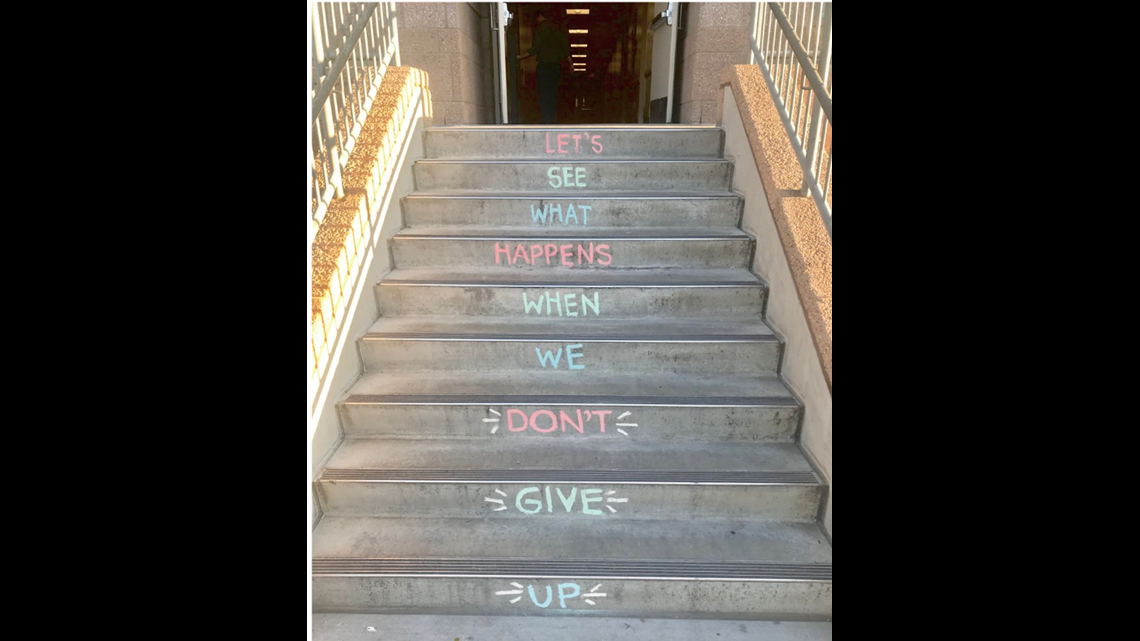 LET'S
SEE
WHAT
HAPPENS
WHEN
WE
DON'T
GIVE
UP